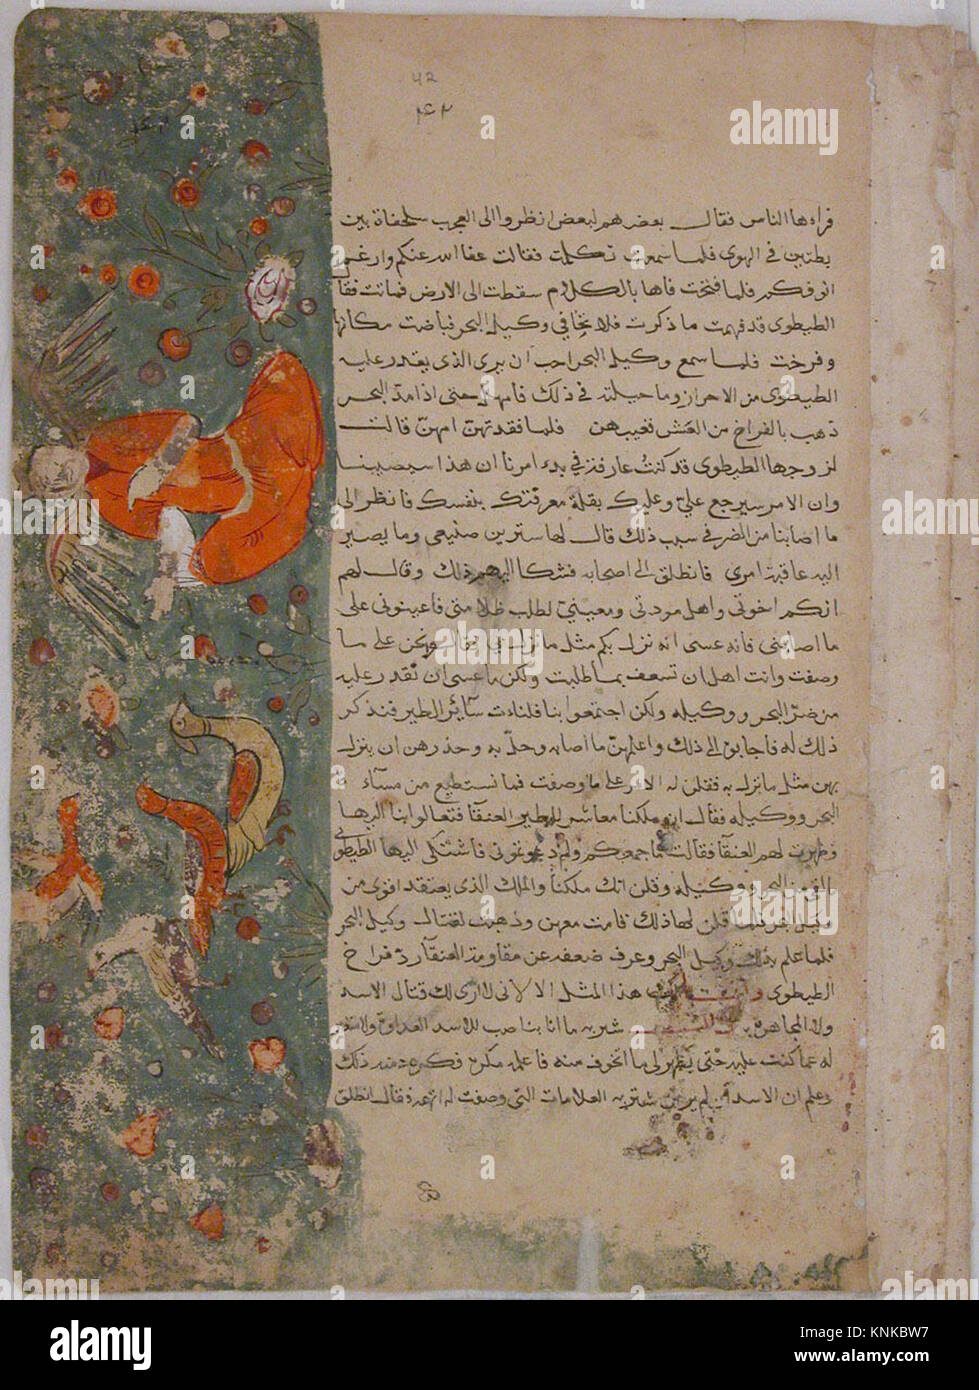 42
فراءها الناس فقال بعضهم لبعض انظروا الى العجب سلحفاة بين
بطتين في الهوى فلما سمعت تكلمت فقالت عفا الله عنكم وارغم
انوفكم فلما فتحت فاها بالكلام سقطت الى الارض فماتت فقال
الطيطوى قد فهمت ما ذكرت فلا تخافي وكيل البحر فباضت مكانها
وفرخت فلما سمع وكيل البحر احب ان يرى الذى يقدر عليه
الطيطوى من الاحراز وما حيلته في ذلك فامهل حتى اذا مدّ البحر
ذهب بالفراخ من العش فغيبهن فلما فقدتهن امهن قالت
لزوجها الطيطوى قد كنت عارفة في بدء امرنا ان هذا سيصيبنا
وان الامر سيرجع عليّ وعليك بقلة معرفتك بنفسك فانظر الى
ما اصابنا من الضر في سبب ذلك قال لها سترين صنيعى وما يصير
اليه عاقبة امرى فانطلق الى اصحابه فشكا اليهم ذلك وقال لهم
انكم اخوتى واهل مودتى ومعينيّ لطلب ظلامتى فاعينونى على
ما اصابنى فانه عسى انه نزل بكم مثل ما نزل بي فقالو نحن على ما
وصفت وانت اهل ان تسعف بما طلبت ولكن ما عسى ان نقدر عليه
من ضرّ البحر ووكيله ولكن اجتمعوا بنا فلنات سآئر الطير فنذكر
ذلك له فاجابن الى ذلك واعلمهن ما اصابه وحلّ به وحذرهن ان ينزل
بهن مثل ما نزل به فقلن له الامر على ما وصفت فما نستطيع من مسآءة
البحر ووكيله فقال ان ملكنا معاشر الطير العنقآ فتعالوا بنا اليها
وظهرت لهم العنقآ فقالت ما جمعكم ولم دعوتمونى فاشتكى اليها الطيطوى
القى من البحر ووكيله وقلن انك ملكنا والملك الذى يعتقد اقوى من
وكيل البحر فلما قلن لها ذلك قامت معهن وذهبت لقتال وكيل البحر
فلما علم بذلك وكيل البحر وعرف ضعفه عن مقاومة العنقآ ردّ فراخ
الطيطوى هذا المثل الا لانى لا ارى لك قتال الاسد
ولا المجاهرة به شتربه ما انا بناصب للاسد العداوة ولا متغير
له عما كنت عليه حتى يظهر لى ما اتخوف منه فاعلم فكره دمنه ذلك
وعلم ان الاسد لم ير من شتربه العلامات التى وصفت له اتهمه فقال انطلق
alamy stock photo
a alamy
a
alamy
Image ID: KNKBW7
www.alamy.com